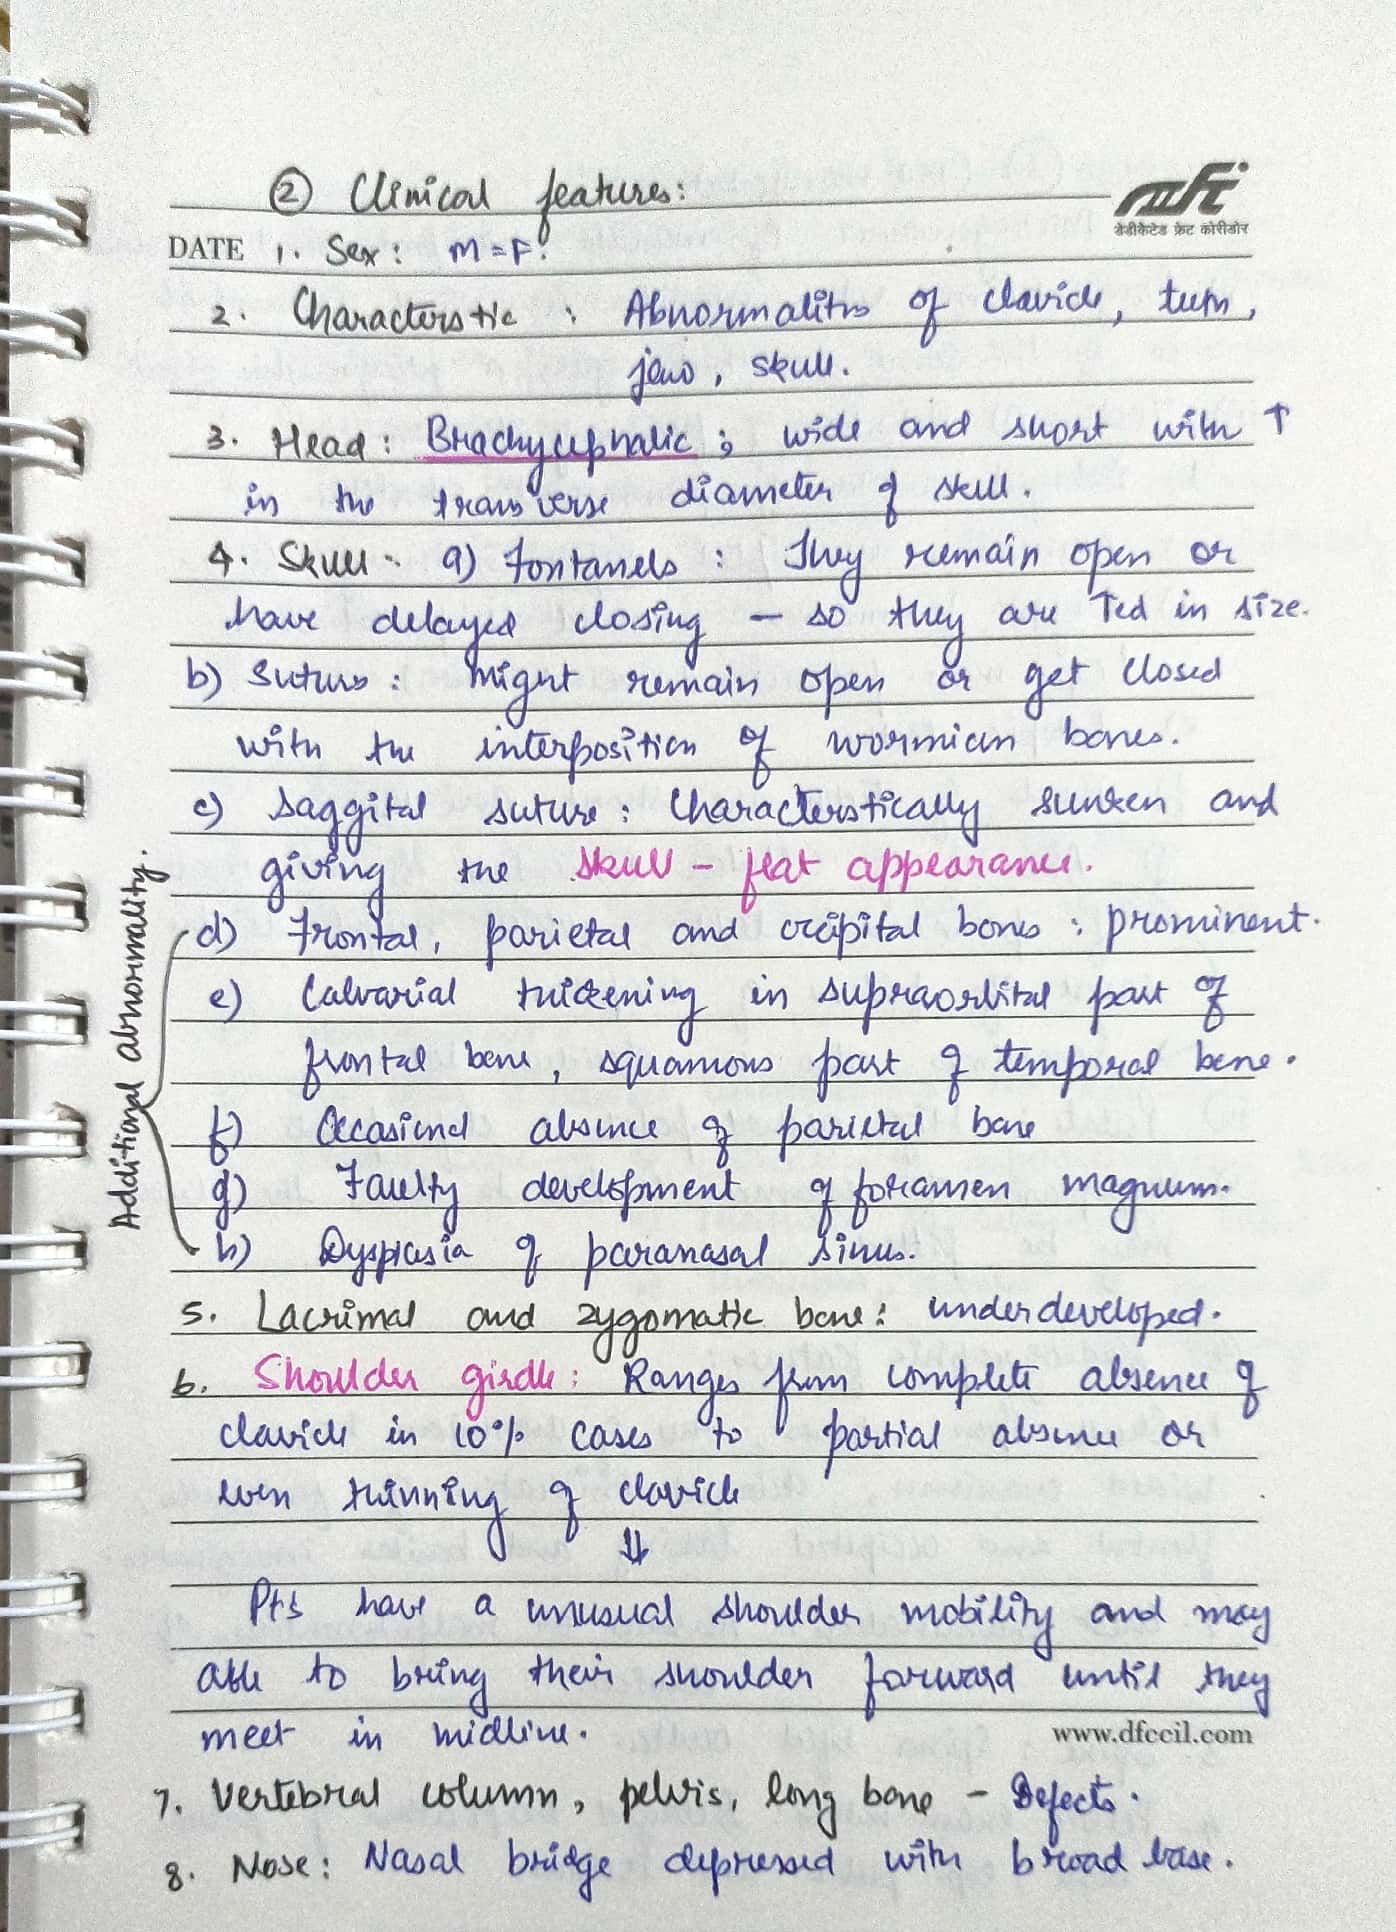 ② Clinical features:
डेडीकेटेड फ्रेट कोरीडोर
DATE 1. Sex: M=F.
2. Characterstic : Abnormalities of clavicle, teeth,
jaw, skull.
3. Head: Brachycephalic; wide and short with ↑
in the transverse diameter of skull.
4. Skull - a) Fontanels : They remain open or
have delayed closing - so they are ↑ed in size.
b) Sutures: might remain open or get closed
with the interposition of wormian bones.
c) Saggital suture: characterstically sunken and
giving the skull - flat appearance.
Additional abnormality.
d) Frontal, parietal and occipital bones : prominent.
e) Calvarial thickening in supraorbital part of
frontal bone, squamous part of temporal bone.
f) Occasional absence of parietal bone
g) Faulty development of foramen magnum.
h) Dysplasia of paranasal sinus.
5. Lacrimal and zygomatic bone: underdeveloped.
6. Shoulder girdle: Ranges from complete absence of
clavicle in 10% cases to partial absence or
even thinning of clavicle
⇓
Pts have a unusual shoulder mobility and may
able to bring their shoulder forward until they
meet in midline.
www.dfccil.com
7. Vertebral column, pelvis, long bone - Defects.
8. Nose: Nasal bridge depressed with broad base.